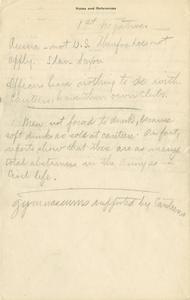 Notes and References
1st Negative.
Russia - not U.S. therefore does not
apply.
Officers have nothing to do with
canteens, have their own clubs.
Men not forced to drink, because
soft drinks are sold at canteen.
reports show that there are as many
total abstainers in the army as in
Civil life.
Gymnasiums supported by Canteens